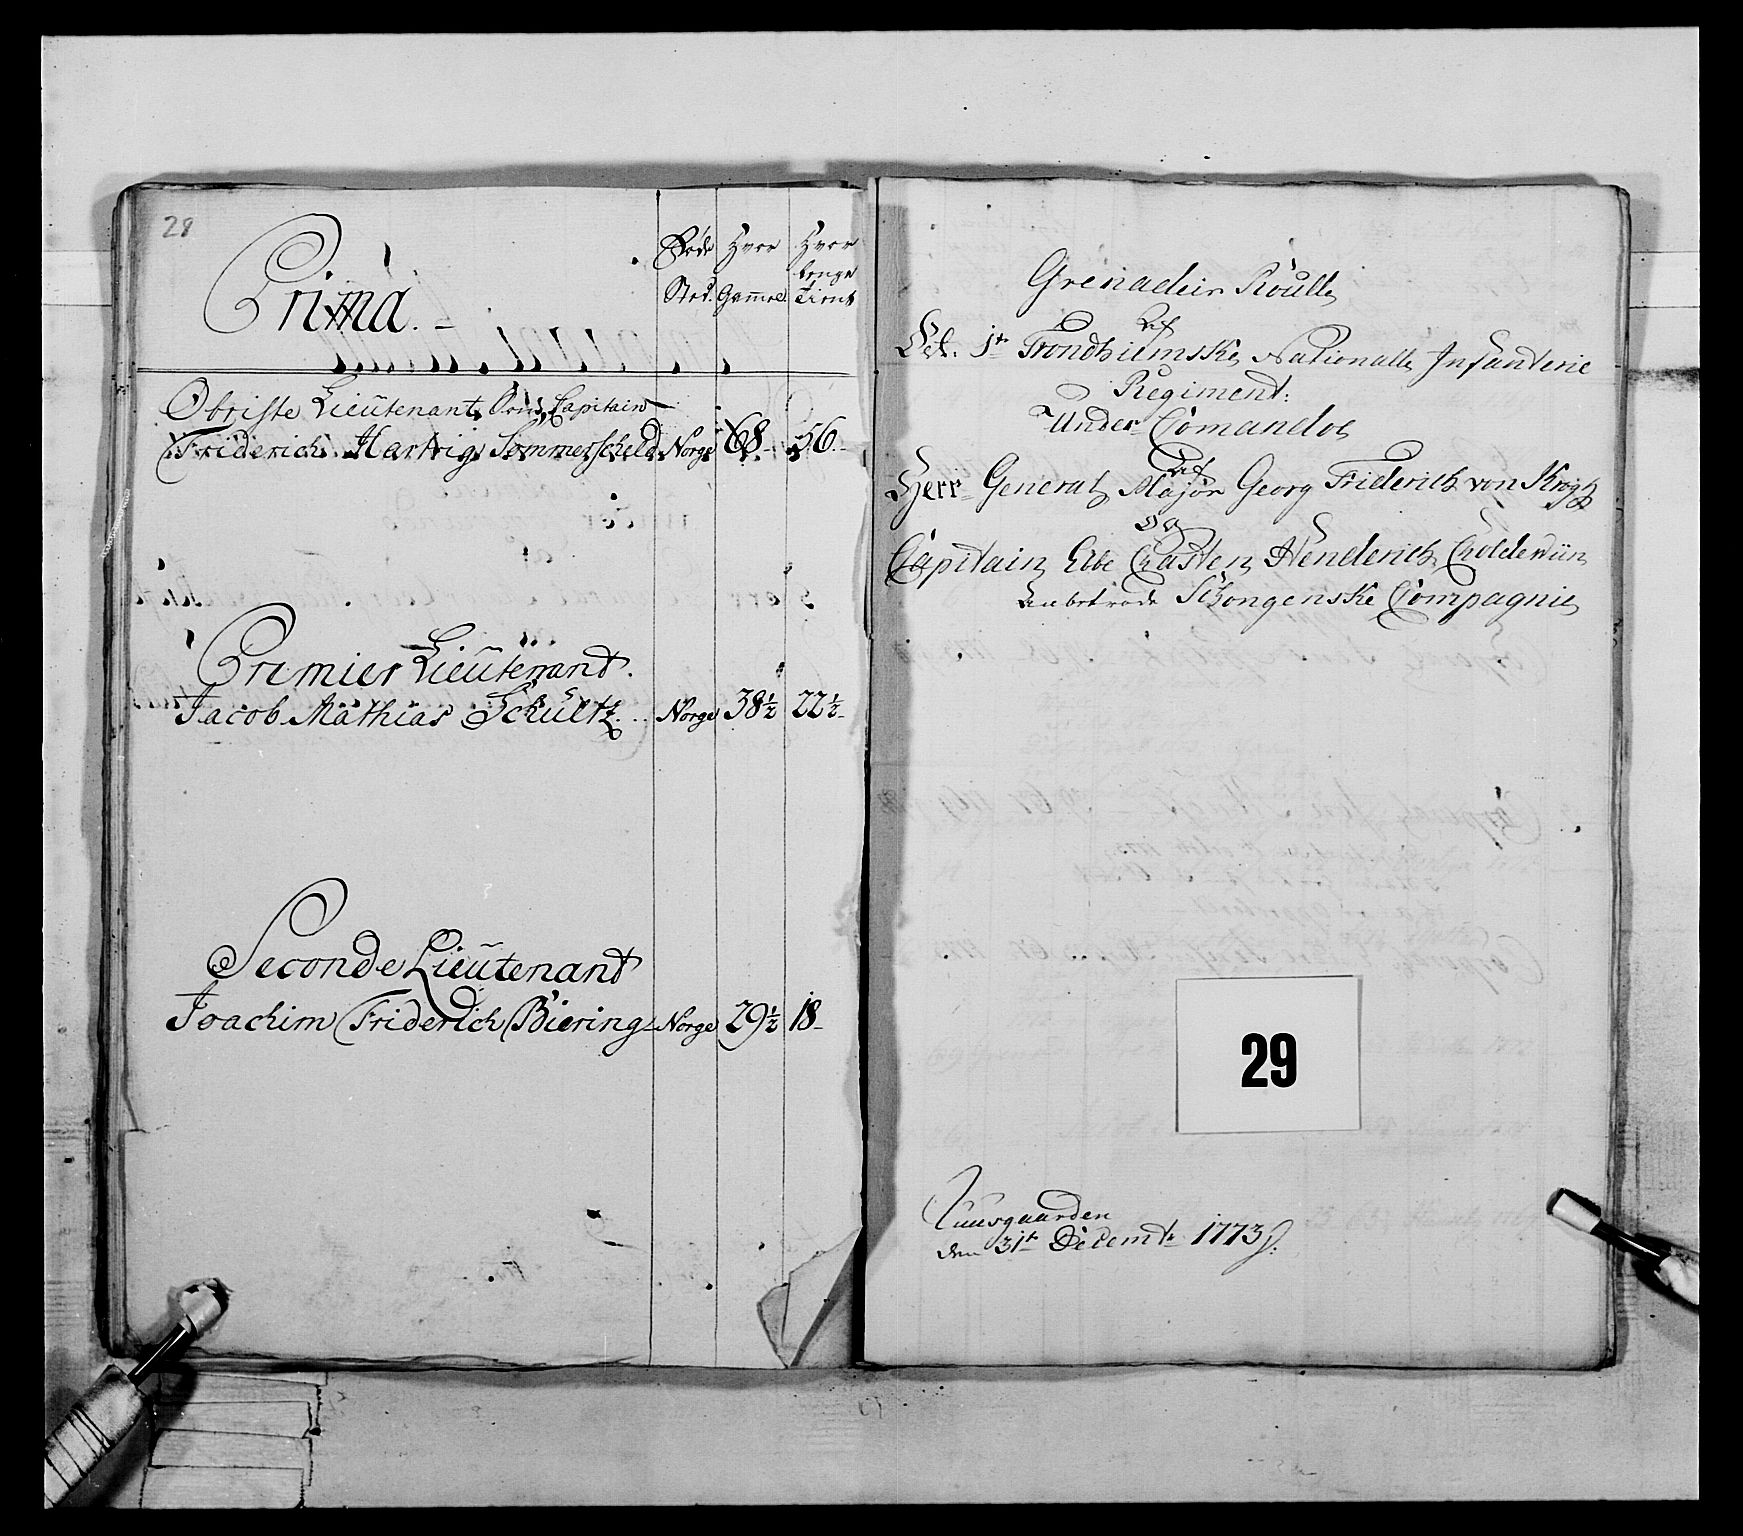 28
Føde Hvor Hvor
Længe
Prima.
Sted. Gammel Tient
Obriste Lieutenant Capitain
Friderich Hartvig Sommerscheld Norge 68 - 56 -
Premier Lieutenant.
Jacob Mathias Schultz Norge 38½ 22½ -
Seconde Lieutenant
Joachim Friderich Biering - Norge 29½ 18 -
Grenadeir Roulle
Af
Det 1te Trondhiemske Nationalle Infanterie
Regiment:
Under Comando
Af
Herr General Major Georg Friderich von Krogh
Og
Capitain Ebbe Carsten Henderich
Anbetroede Compagnie
29
Tuusgaarden
den 31te Decemtr 1773